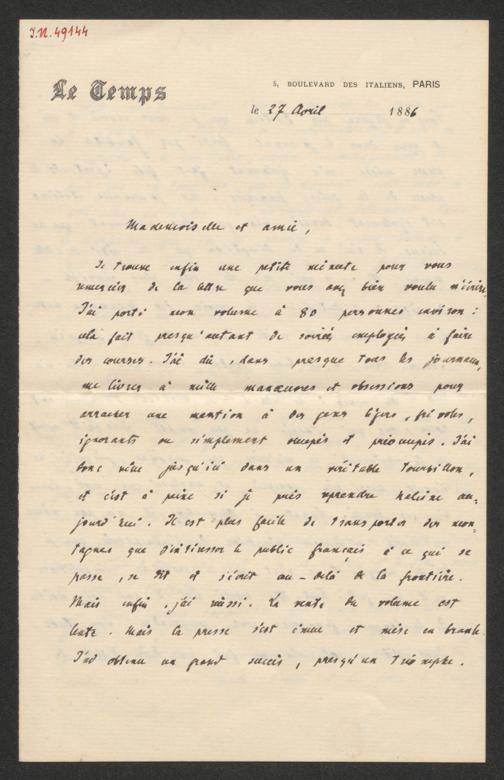 I.N. 49144
Le Temps
5, BOULEVARD DES ITALIENS, PARIS
le 27 Avril 1886
Mademoiselle et amie,
Je trouve enfin une petite minute pour vous
remercier de la lettre que vous avez bien voulu m'écrire.
J'ai porté mon volume à 80 personnes environ :
cela fait presqu'autant de soirées employées à faire
des courses. J'ai dû, dans presque tous les journaux,
me livrer à mille manœuvres et obsessions pour
arracher une mention à des gens légers, frivoles,
ignorants ou simplement occupés et préoccupés. J'ai
donc vécu jusqu'ici dans un véritable tourbillon,
et c'est à peine si je puis reprendre haleine au-
jourd'hui. Il est plus facile de transporter des mon-
tagnes que d'intéresser le public français à ce qui se
passe, se dit et s'écrit au-delà de la frontière.
Mais enfin, j'ai réussi. La vente du volume est
lente. Mais la presse s'est émue et mise en branle.
J'ai obtenu un grand succès, presqu'un triomphe.